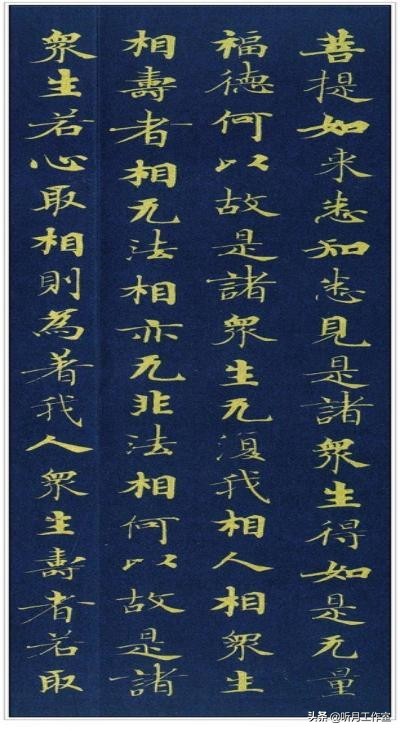 菩提如来悉知悉見是諸衆生得如是无量
福德何以故是諸衆生无復我相人相衆生
相壽者相无法相亦无非法相何以故是諸
衆生若心取相則為著我人衆生壽者若取
头条 @听月工作室